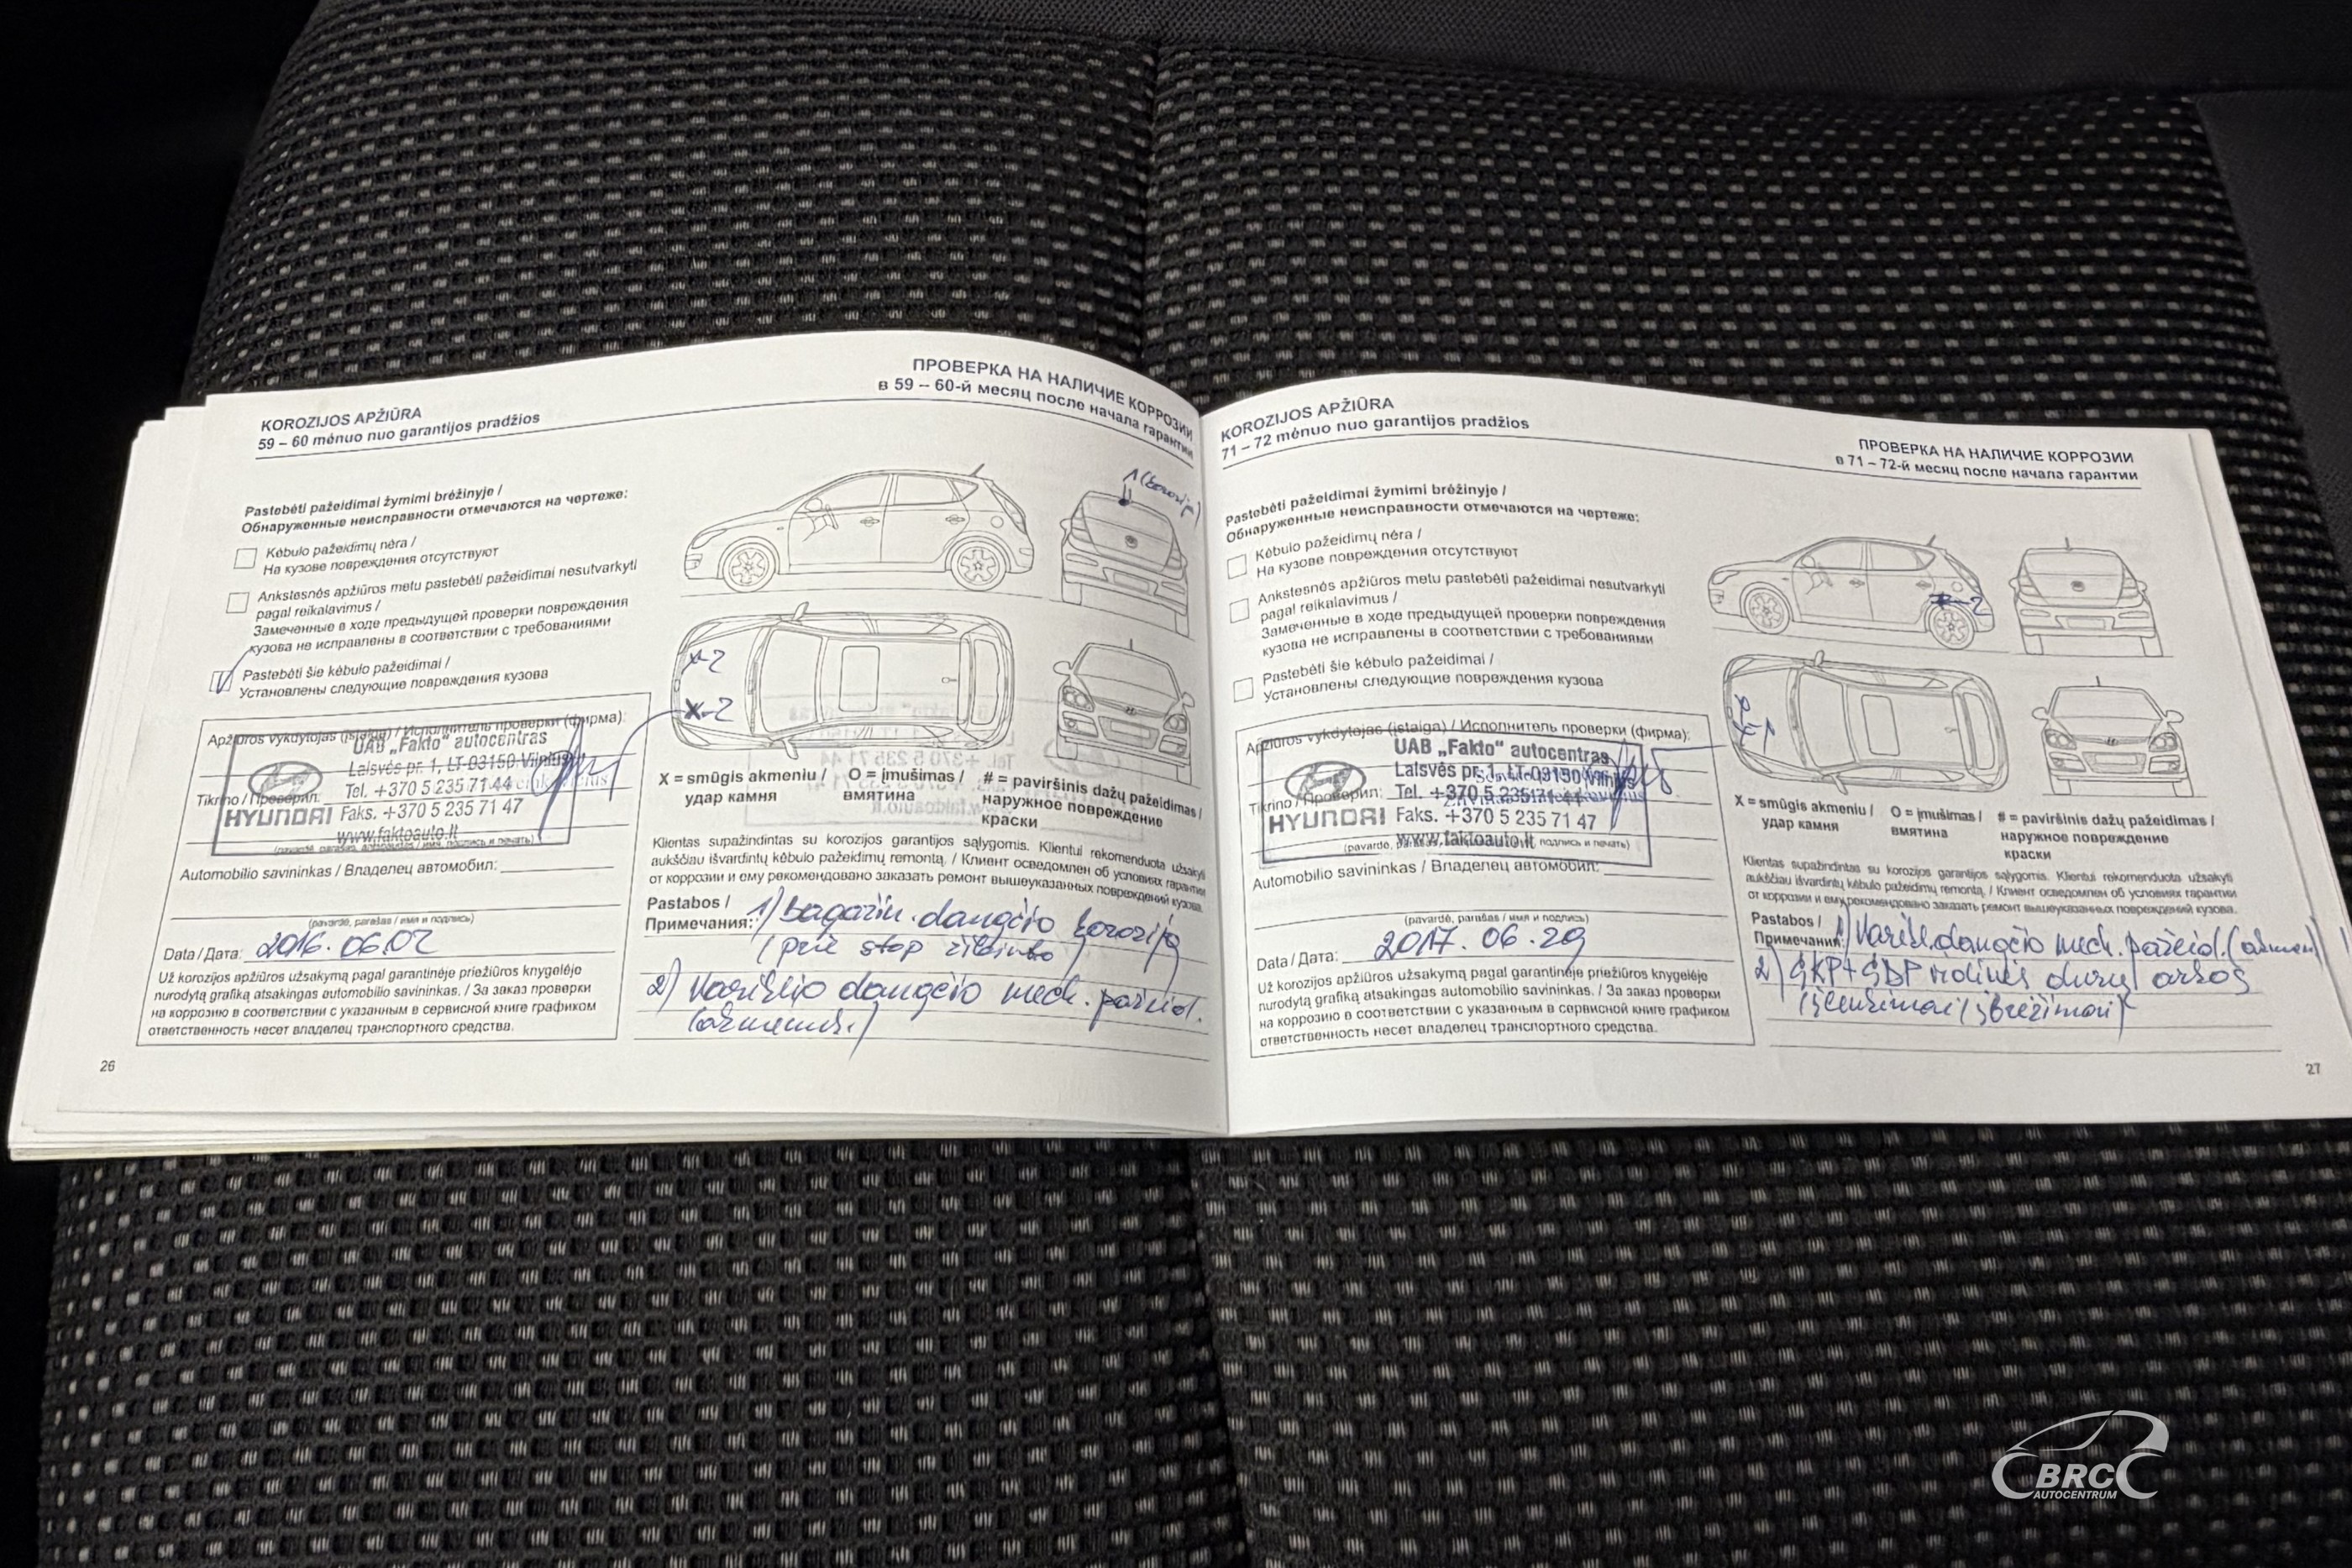 KOROZIJOS APŽIŪRA
59 – 60 mėnuo nuo garantijos pradžios
ПРОВЕРКА НА НАЛИЧИЕ КОРРОЗИИ
в 59 – 60-й месяц после начала гарантии
Pastebėti pažeidimai žymimi brėžinyje /
Обнаруженные неисправности отмечаются на чертеже:
Kėbulo pažeidimų nėra /
На кузове повреждения отсутствуют
Ankstesnės apžiūros metu pastebėti pažeidimai nesutvarkyti
pagal reikalavimus /
Замеченные в ходе предыдущей проверки повреждения
кузова не исправлены в соответствии с требованиями
Pastebėti šie kėbulo pažeidimai /
Установлены следующие повреждения кузова
Apžiūros vykdytojas (įstaiga) / Исполнитель проверки (фирма):
UAB „Fakto“ autocentras
Laisvės pr. 1, LT-03150 Vilnius
Tel. +370 5 235 71 44
Tikrino / Проверил:
HYUNDAI Faks. +370 5 235 71 47
www.faktoauto.lt
Automobilio savininkas / Владелец автомобил:
(pavardė, parašas / имя и подпись)
Data / Дата: 2016.06.02
Už korozijos apžiūros užsakymą pagal garantinėje priežiūros knygelėje
nurodytą grafiką atsakingas automobilio savininkas. / За заказ проверки
на коррозию в соответствии с указанным в сервисной книге графиком
ответственность несет владелец транспортного средства.
26
x-2
x-2
X = smūgis akmeniu /
удар камня
O = įmušimas /
вмятина
# = paviršinis dažų pažeidimas /
наружное повреждение
краски
Klientas supažindintas su korozijos garantijos sąlygomis. Klientui rekomenduota užsakyti
aukščiau išvardintų kėbulo pažeidimų remontą. / Клиент осведомлен об условиях гарантии
от коррозии и ему рекомендовано заказать ремонт вышеуказанных повреждений кузова.
Pastabos /
Примечания: 1) bagažin. dangčio korozija
(prie stop žibinto)
2) Variklio dangčio mech. pažeid.
(akmenis.)
KOROZIJOS APŽIŪRA
71 – 72 mėnuo nuo garantijos pradžios
ПРОВЕРКА НА НАЛИЧИЕ КОРРОЗИИ
в 71 – 72-й месяц после начала гарантии
Pastebėti pažeidimai žymimi brėžinyje /
Обнаруженные неисправности отмечаются на чертеже:
Kėbulo pažeidimų nėra /
На кузове повреждения отсутствуют
Ankstesnės apžiūros metu pastebėti pažeidimai nesutvarkyti
pagal reikalavimus /
Замеченные в ходе предыдущей проверки повреждения
кузова не исправлены в соответствии с требованиями
Pastebėti šie kėbulo pažeidimai /
Установлены следующие повреждения кузова
Apžiūros vykdytojas (įstaiga) / Исполнитель проверки (фирма):
UAB „Fakto“ autocentras
Laisvės pr. 1, LT-03150 Vilnius
Tikrino / Проверил: Tel. +370 5 235 71 44
HYUNDAI Faks. +370 5 235 71 47
www.faktoauto.lt
Automobilio savininkas / Владелец автомобил:
(pavardė, parašas / имя и подпись)
Data / Дата: 2017.06.29
Už korozijos apžiūros užsakymą pagal garantinėje priežiūros knygelėje
nurodytą grafiką atsakingas automobilio savininkas. / За заказ проверки
на коррозию в соответствии с указанным в сервисной книге графиком
ответственность несет владелец транспортного средства.
X = smūgis akmeniu /
удар камня
O = įmušimas /
вмятина
# = paviršinis dažų pažeidimas /
наружное повреждение
краски
Klientas supažindintas su korozijos garantijos sąlygomis. Klientui rekomenduota užsakyti
aukščiau išvardintų kėbulo pažeidimų remontą. / Клиент осведомлен об условиях гарантии
от коррозии и ему рекомендовано заказать ремонт вышеуказанных повреждений кузова.
Pastabos /
Примечания: 1) Varikl. dangčio mech. pažeid. (akmen)
2) GKP+GDP vidinės durų arkos
(įlenkimai/įbrėžimai)
27
BRC
AUTOCENTRUM